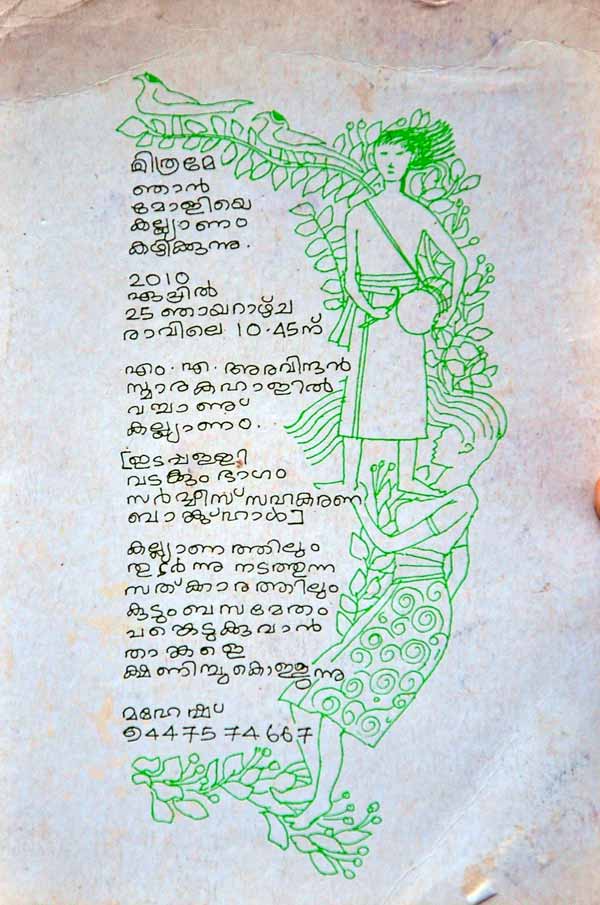 മിത്രമേ
ഞാൻ
മോളിയെ
കല്ല്യാണം
കഴിക്കുന്നു.
2010
ഏപ്രിൽ
25 ഞായറാഴ്ച
രാവിലെ 10.45ന്
എം. എ. അരവിന്ദൻ
സ്മാരകഹാളിൽ
വച്ചാണു്
കല്ല്യാണം.
[ഇടപ്പള്ളി
വടക്കും ഭാഗം
സർവ്വീസ് സഹകരണ
ബാങ്ക് ഹാൾ]
കല്ല്യാണത്തിലും
തുടർന്നു നടത്തുന്ന
സത്ക്കാരത്തിലും
കുടുംബസമേതം
പങ്കെടുക്കുവാൻ
താങ്കളെ
ക്ഷണിച്ചുകൊള്ളുന്നു
മഹേഷ്
94475 74 667